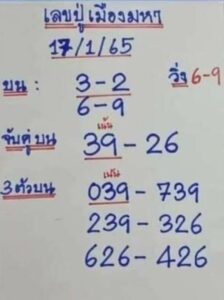 เลขปู่เมืองมหา
17/1/65
บน : 3-2 วิ่ง 6-9
6-9
เน้น
จับคู่บน 39-26
เน้น
3ตัวบน 039-739
239-326
626-426